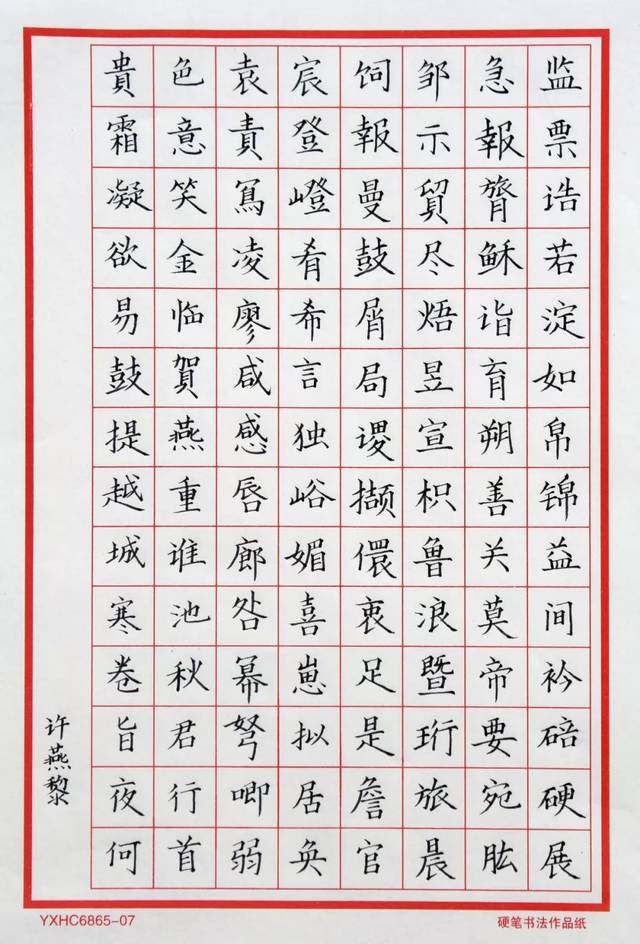 监票诰若淀如帛锦益间衿碚硬展
急報膂稣诣育朔善关莫帝要宛肱
邹示貿尽焐昱宣枳鲁浪暨珩旅晨
饲報曼鼓屑局谡撷儇衷足是詹官
宸登嶝肴希言独峪媚喜崽拟居奂
袁責凌廖咸感唇廊咎幂弩唧弱
色意笑金临賀燕重谁池秋君行首
貴霜凝欲易鼓提越城寒卷旨夜何
许燕黎
YXHC6865-07
硬笔书法作品纸